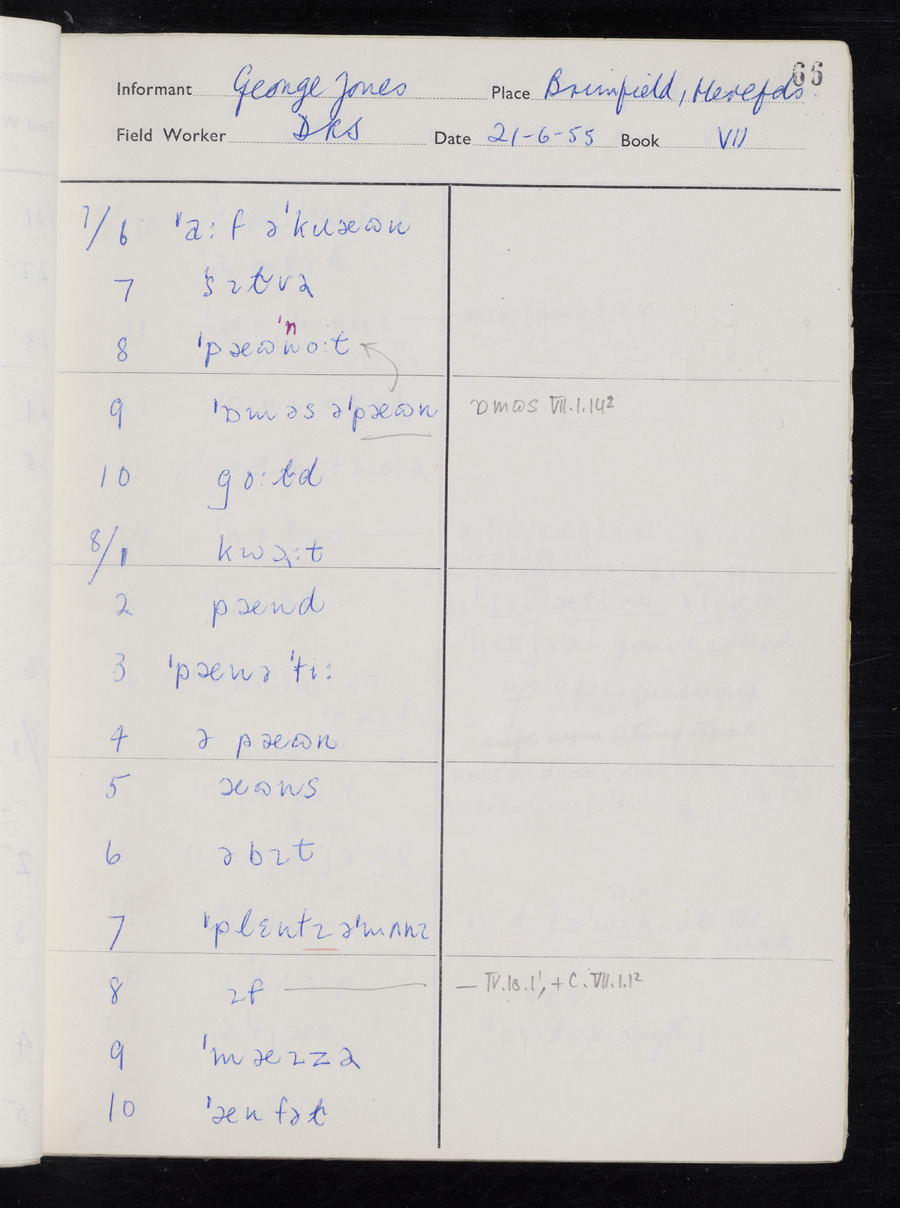 66
Informant George Jones Place Brimfield, Herefds
Field Worker DRS Date 21-6-55 Book VII
7/6 ˈaː f əˈkɹæʊn
7 ˈsɪɫvə
ˈn
8 ˈpæʊnoːt
9 ˈɒməs əˈpæʊn ɒmʊs VII.1.14²
10 goːɫd
8/1 kwəːt
2 pænd
3 ˈpænə ˈtiː
4 ə pæʊn
5 æʊns
6 ə bɪt
7 ˈplɛntɪ əˈmʌnɪ
8 ɪf — IV.10.1¹, + C. VII.1.1²
9 ˈmæɪzə
10 ˈænfəɫ